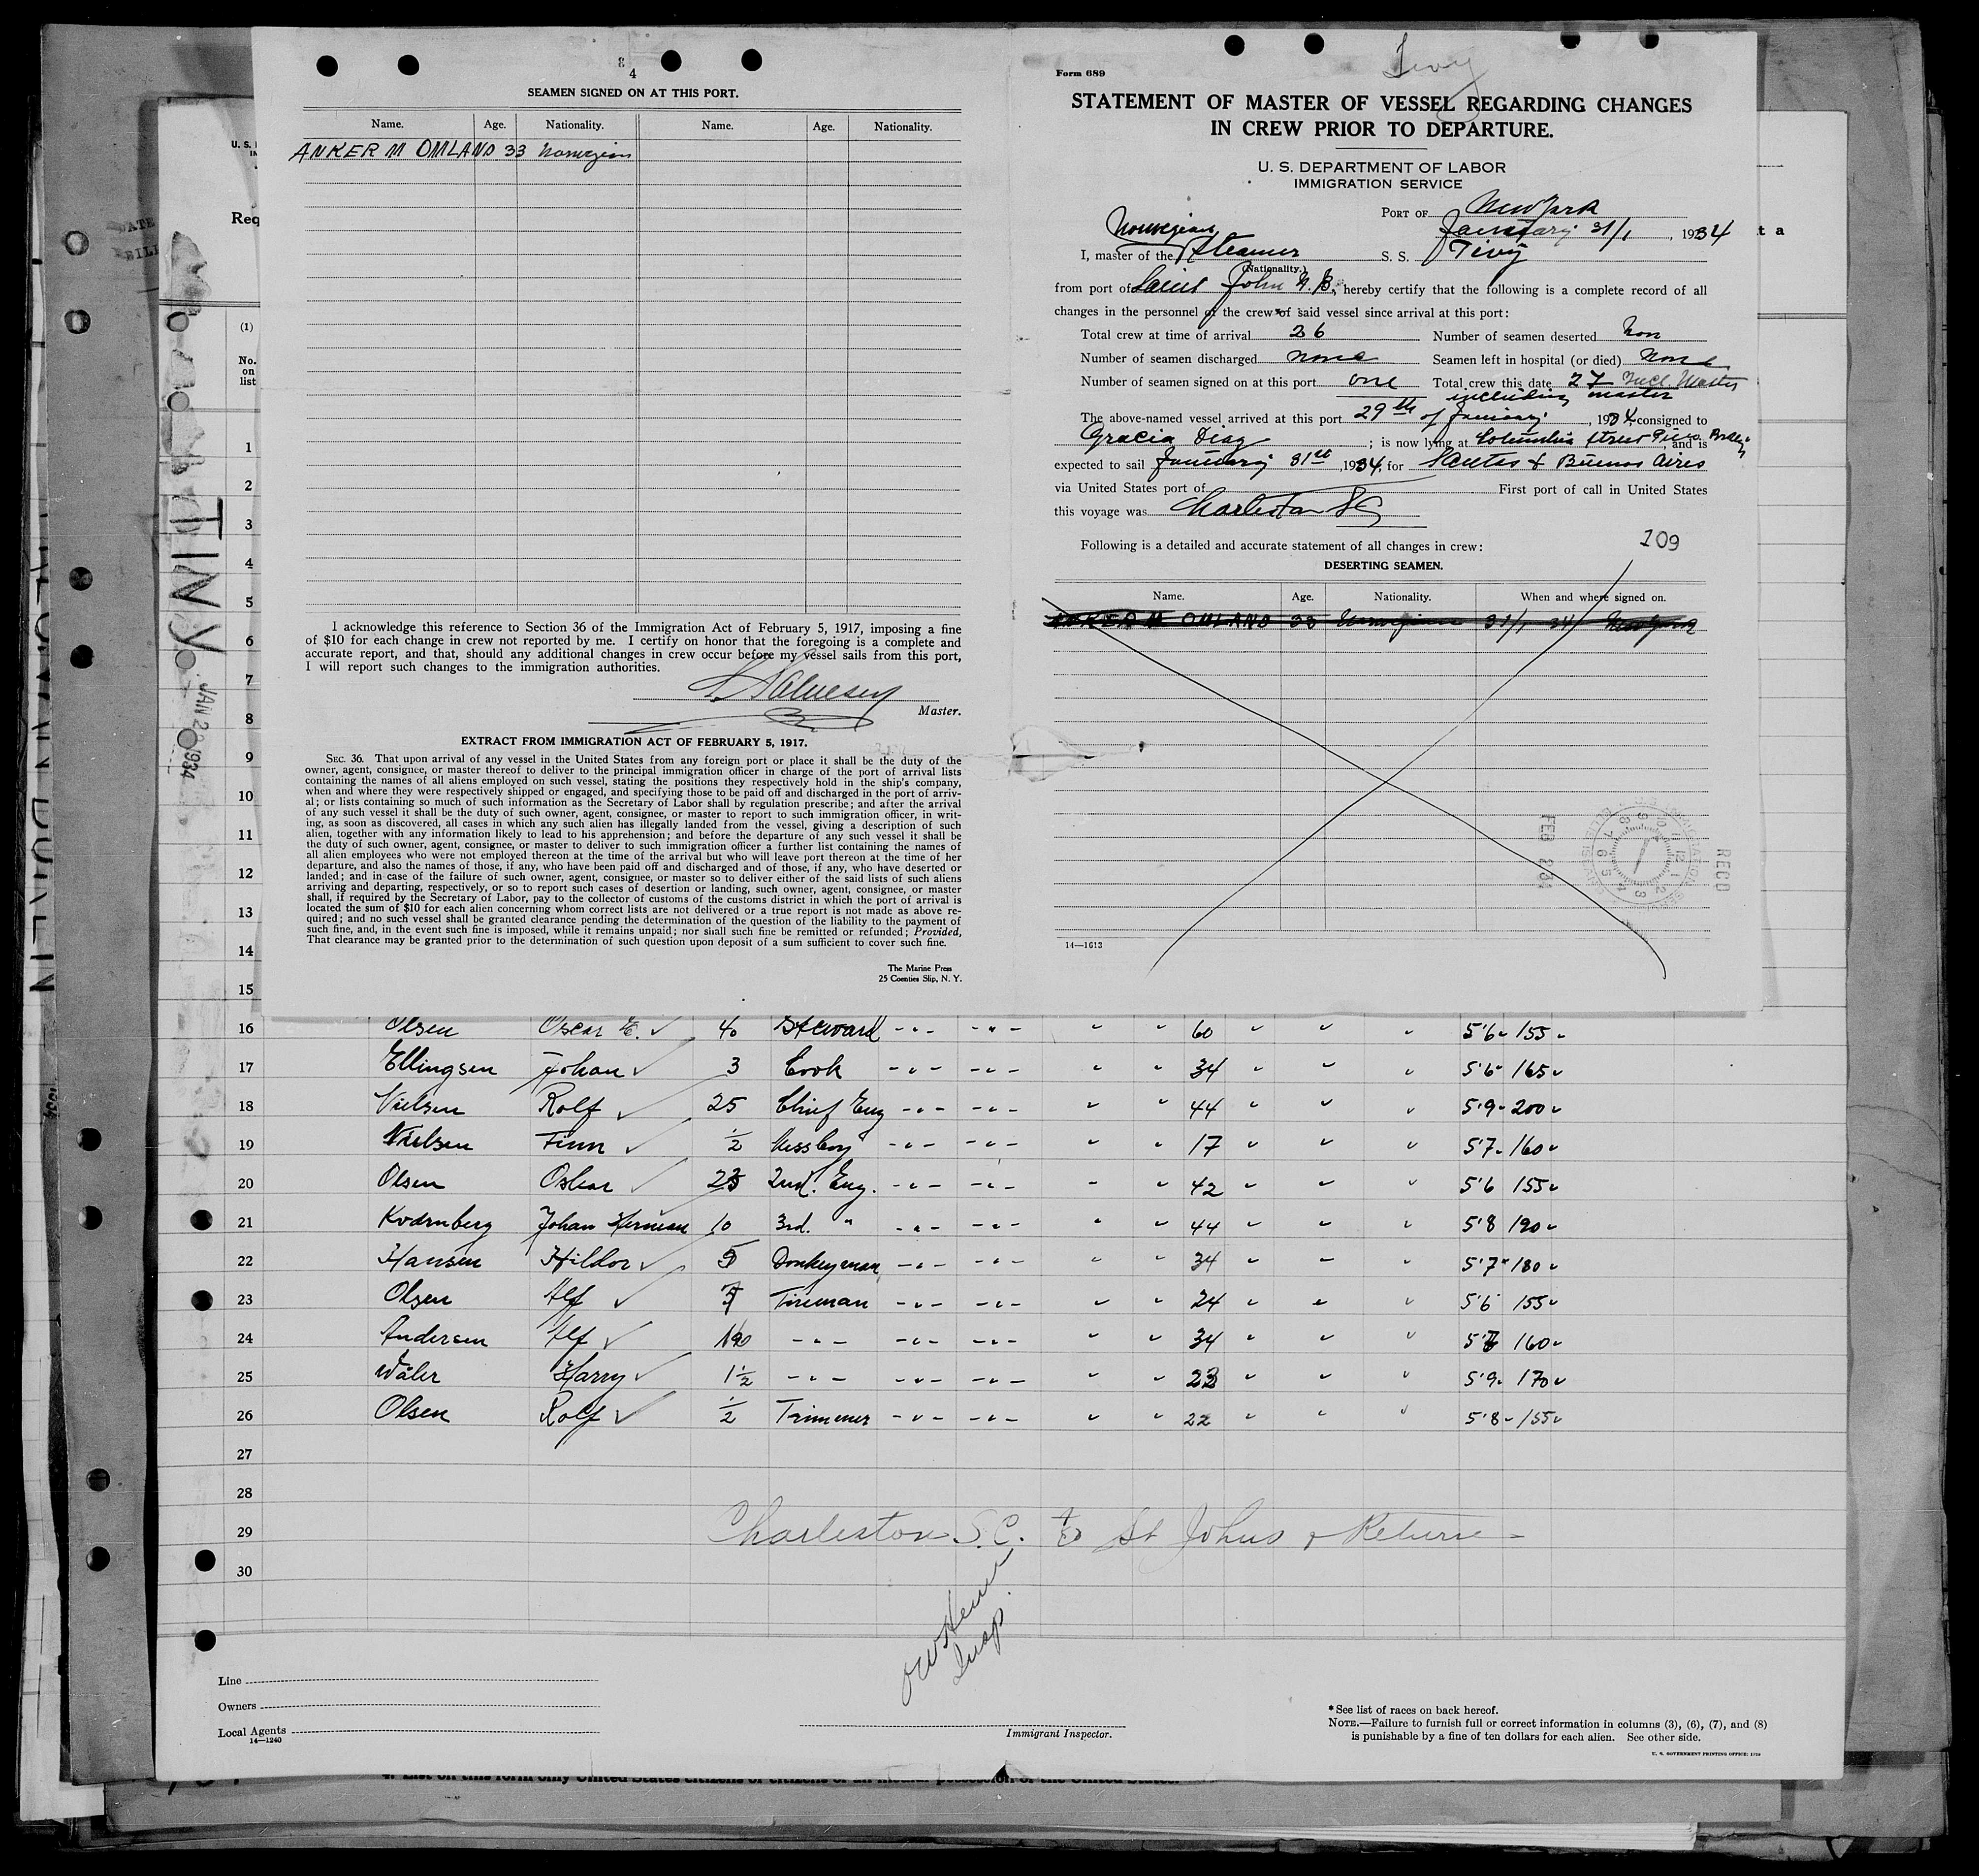 8
4
SEAMEN SIGNED ON AT THIS PORT.
Name. Age. Nationality. Name. Age. Nationality.
ANKER M OMLAND 33 Norwegian
I acknowledge this reference to Section 36 of the Immigration Act of February 5, 1917, imposing a fine
of $10 for each change in crew not reported by me. I certify on honor that the foregoing is a complete and
accurate report, and that, should any additional changes in crew occur before my vessel sails from this port,
I will report such changes to the immigration authorities.
Master.
EXTRACT FROM IMMIGRATION ACT OF FEBRUARY 5, 1917.
SEC. 36. That upon arrival of any vessel in the United States from any foreign port or place it shall be the duty of the
owner, agent, consignee, or master thereof to deliver to the principal immigration officer in charge of the port of arrival lists
containing the names of all aliens employed on such vessel, stating the positions they respectively hold in the ship's company,
when and where they were respectively shipped or engaged, and specifying those to be paid off and discharged in the port of arriv-
al; or lists containing so much of such information as the Secretary of Labor shall by regulation prescribe; and after the arrival
of any such vessel it shall be the duty of such owner, agent, consignee, or master to report to such immigration officer, in writ-
ing, as soon as discovered, all cases in which any such alien has illegally landed from the vessel, giving a description of such
alien, together with any information likely to lead to his apprehension; and before the departure of any such vessel it shall be
the duty of such owner, agent, consignee, or master to deliver to such immigration officer a further list containing the names of
all alien employees who were not employed thereon at the time of the arrival but who will leave port thereon at the time of her
departure, and also the names of those, if any, who have been paid off and discharged and of those, if any, who have deserted or
landed; and in case of the failure of such owner, agent, consignee, or master so to deliver either of the said lists of such aliens
arriving and departing, respectively, or so to report such cases of desertion or landing, such owner, agent, consignee, or master
shall, if required by the Secretary of Labor, pay to the collector of customs of the customs district in which the port of arrival is
located the sum of $10 for each alien concerning whom correct lists are not delivered or a true report is not made as above re-
quired; and no such vessel shall be granted clearance pending the determination of the question of the liability to the payment of
such fine, and, in the event such fine is imposed, while it remains unpaid; nor shall such fine be remitted or refunded; Provided,
That clearance may be granted prior to the determination of such question upon deposit of a sum sufficient to cover such fine.
The Marine Press
25 Coenties Slip, N. Y.
Form 689
Tivy
STATEMENT OF MASTER OF VESSEL REGARDING CHANGES
IN CREW PRIOR TO DEPARTURE.
U. S. DEPARTMENT OF LABOR
IMMIGRATION SERVICE
PORT OF New York
January 31/1, 1934
Norwegian
I, master of the Steamer S. S. Tivy
(Nationality.)
from port of Saint John N.B., hereby certify that the following is a complete record of all
changes in the personnel of the crew of said vessel since arrival at this port:
Total crew at time of arrival 26 Number of seamen deserted Non
Number of seamen discharged none Seamen left in hospital (or died) None
Number of seamen signed on at this port one Total crew this date 27 Incl. Master
including master
The above-named vessel arrived at this port 29th of January, 1934, consigned to
Gracia Diaz; is now lying at Columbia Street Pier and is
expected to sail January 31st, 1934, for Santos & Buenos Aires
via United States port of First port of call in United States
this voyage was Charleston SC
109
Following is a detailed and accurate statement of all changes in crew:
DESERTING SEAMEN.
Name. Age. Nationality. When and where signed on.
ANKER M OMLAND 33 Norwegian 31/1 34 New York
FEB 2 34
RECD
14—1613
U. S.
Req
t a
(1)
No.
on
list
TINY
JAN 29 1934
1
2
3
4
5
6
7
8
9
10
11
12
13
14
15
16 Olsen Oscar E. 40 Steward 60 5'6 155
17 Ellingsen Johan 3 Cook 34 5'6 165
18 Nielsen Rolf 25 Chief Eng 44 5'9 200
19 Nielsen Finn ½ Messboy 17 5'7 160
20 Olsen Oskar 23 2nd. Eng. 42 5'6 155
21 Kvarnberg Johan Herman 10 3rd. " 44 5'8 190
22 Hansen Hildor 5 Donkeyman 34 5'7 180
23 Olsen Alf 7 Fireman 24 5'6 155
24 Andersen Alf 34 160
25 Wåler Harry 1½ 23 5'9 170
26 Olsen Rolf ½ Trimmer 22 5'8 155
27
28
29
30
Charleston S.C. to St Johns & Return
Insp.
Line
Owners
Local Agents
14—1240
Immigrant Inspector.
* See list of races on back hereof.
NOTE.—Failure to furnish full or correct information in columns (3), (6), (7), and (8)
is punishable by a fine of ten dollars for each alien. See other side.
U. S. GOVERNMENT PRINTING OFFICE
4. List on this form only United States citizens or citizens of an insular possession of the United States.